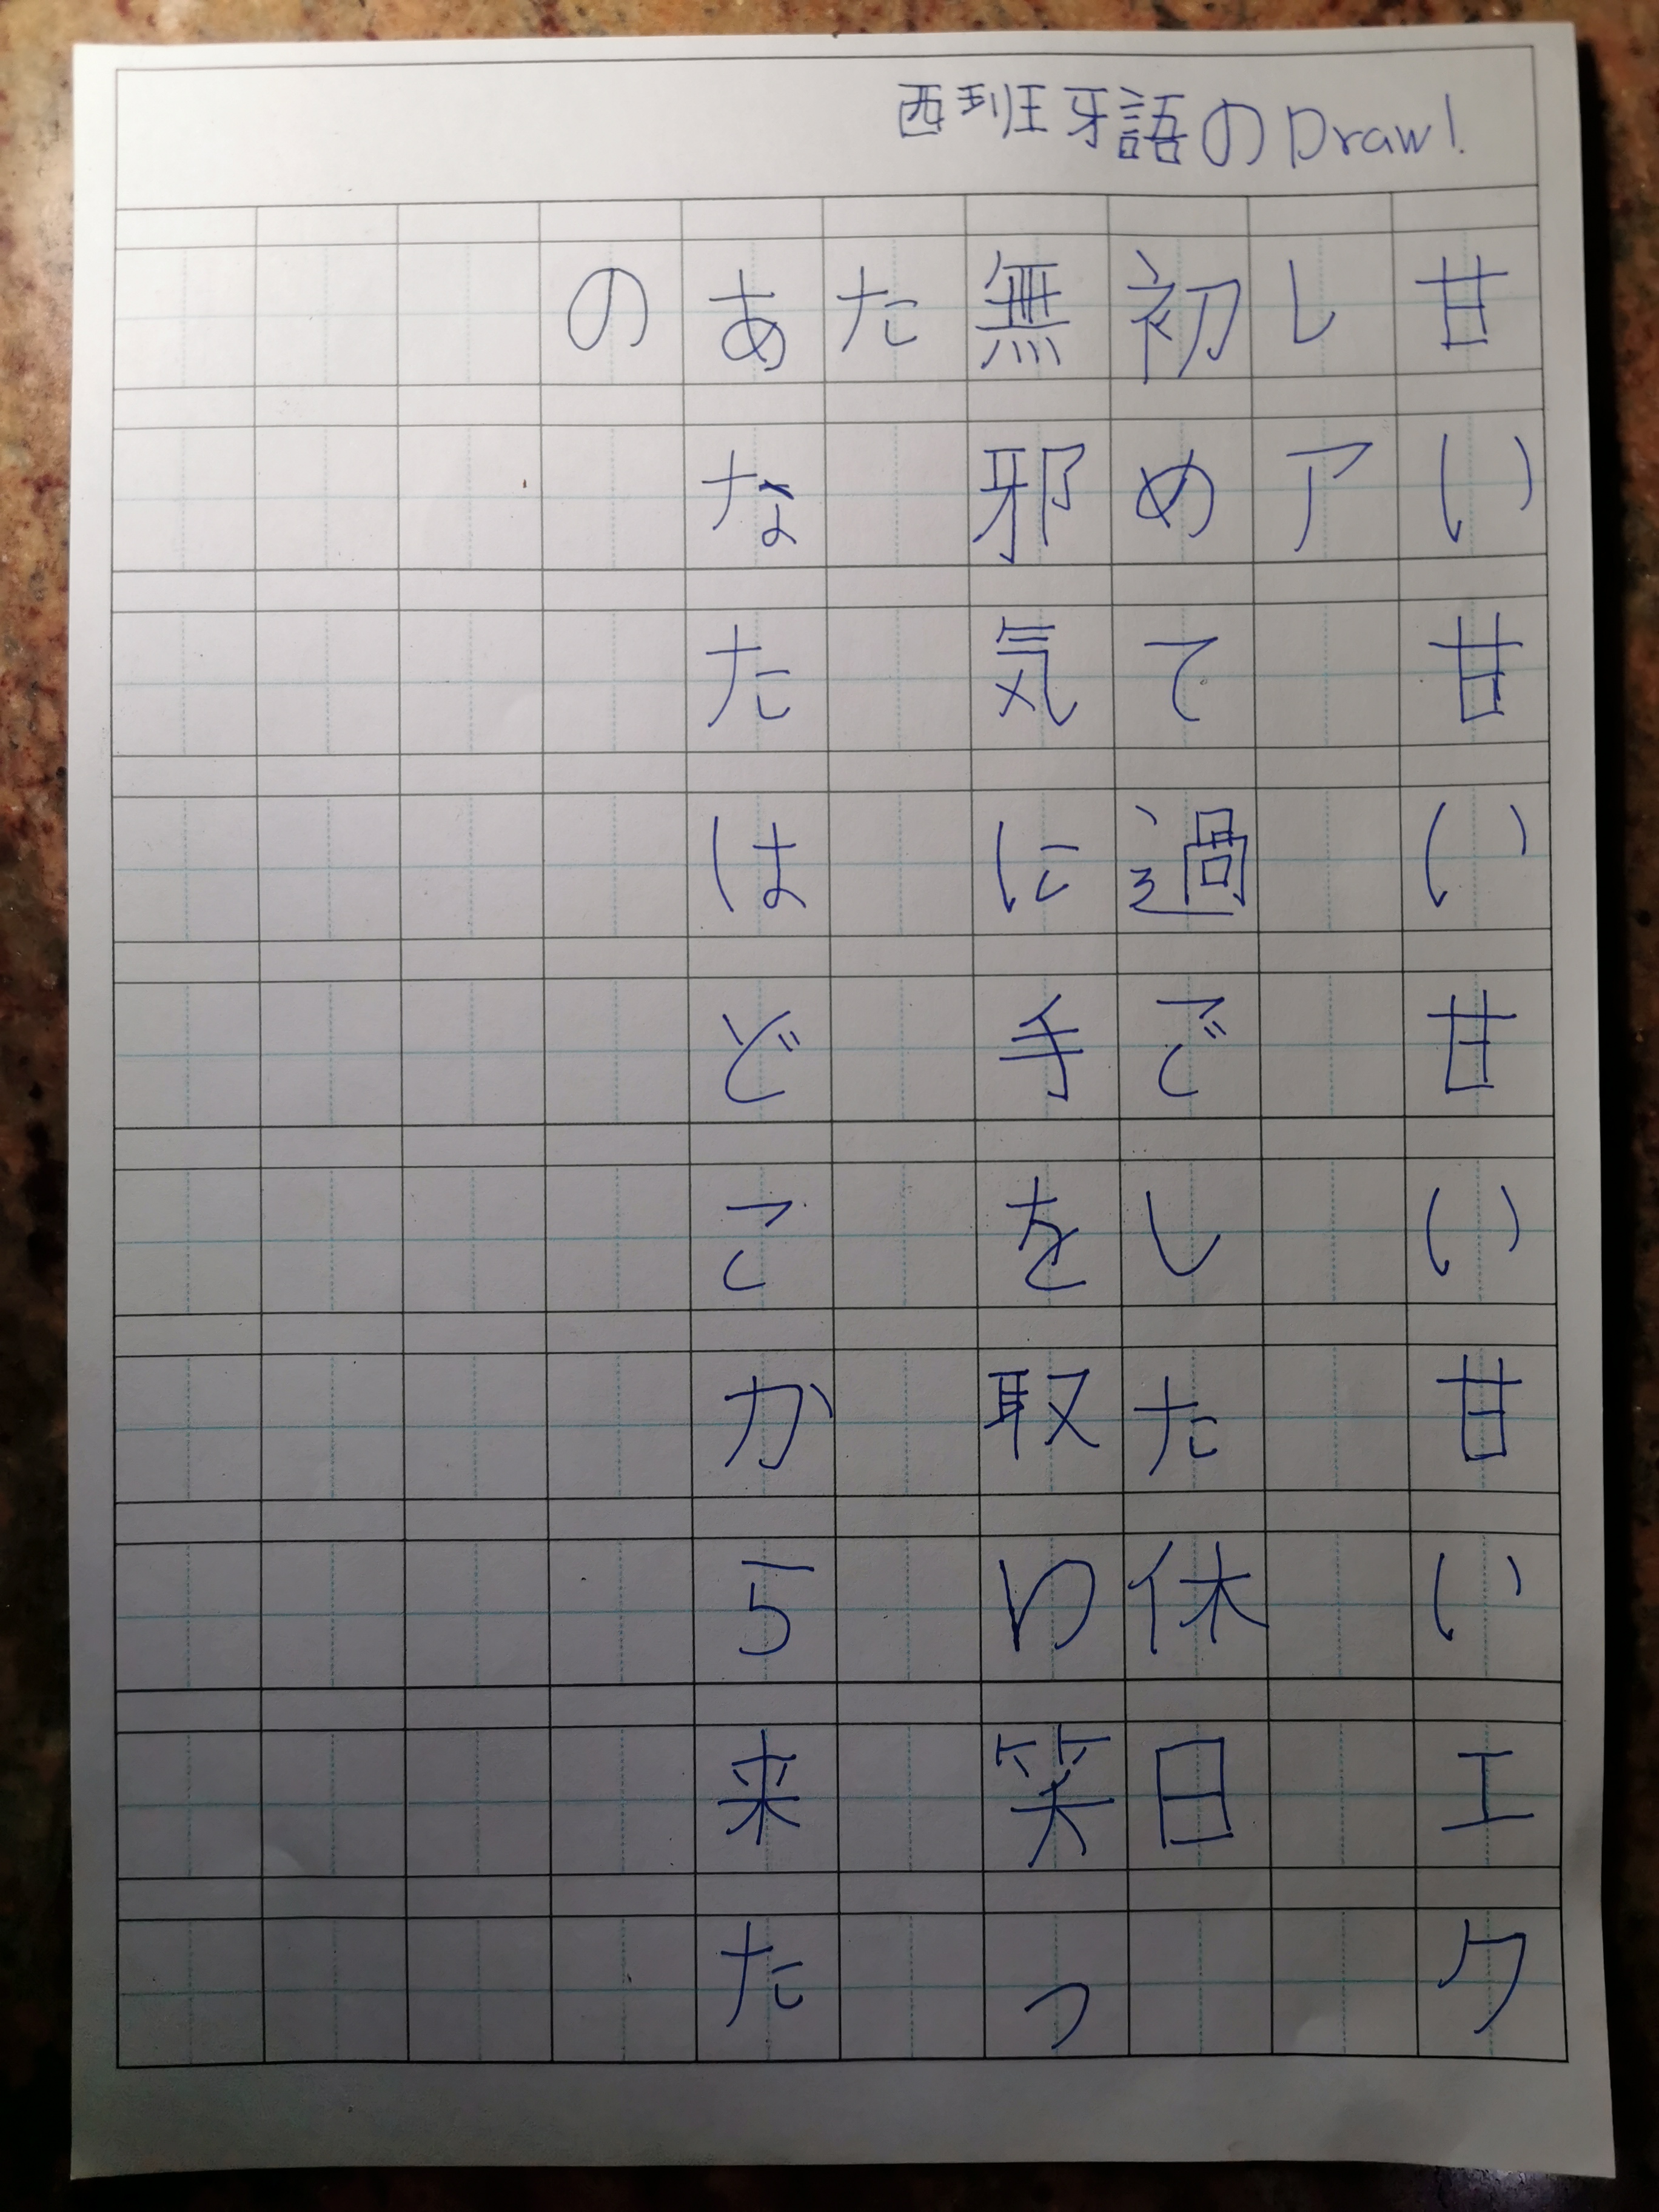 西班牙語のDraw!
甘い甘い甘い甘いエク
しア
初めて過ごした休日
無邪気に手を取り笑っ
た
あなたはどこから来た
の